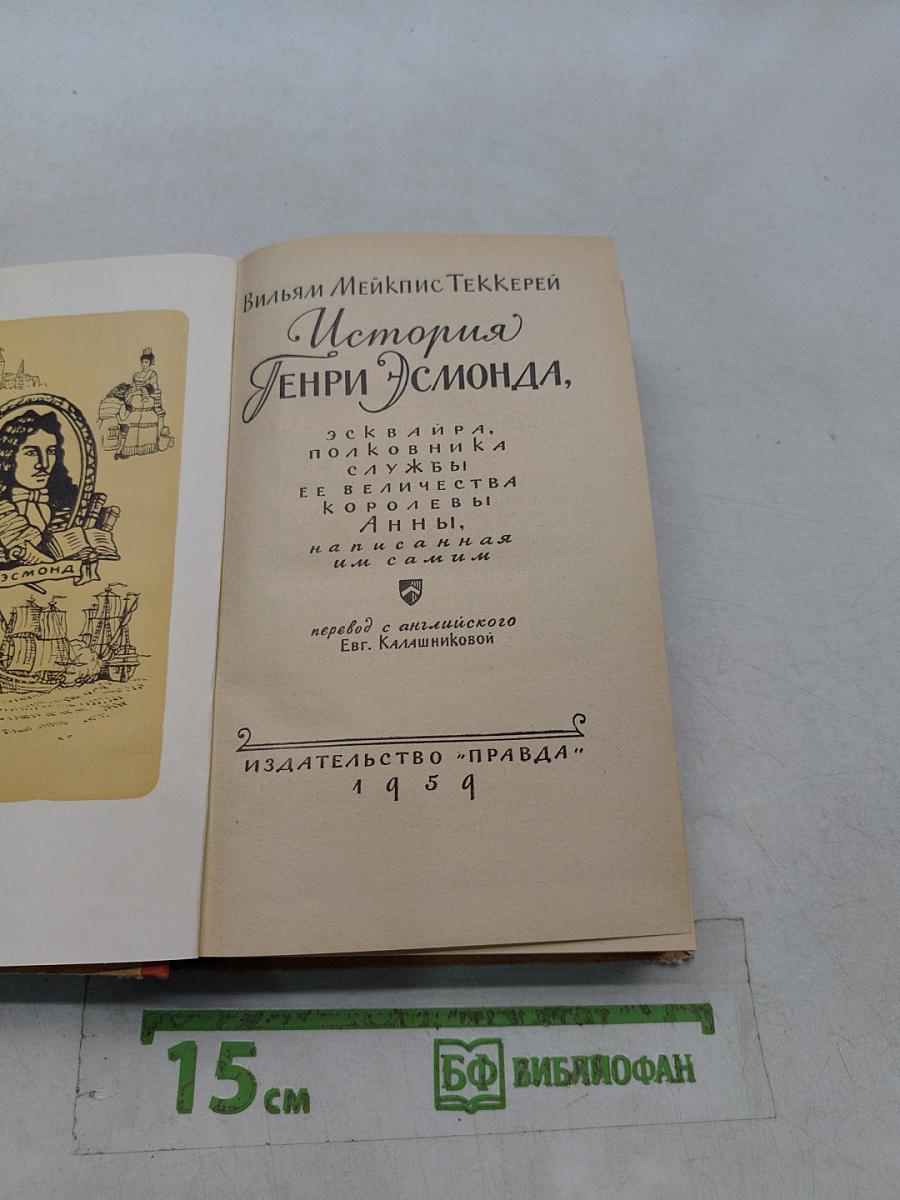 Вильям Мейкпис Теккерей
История
Генри Эсмонда,
эсквайра,
полковника
службы
ее величества
королевы
Анны,
написанная
им самим
перевод с английского
Евг. Калашниковой
ИЗДАТЕЛЬСТВО "ПРАВДА"
1959
ЭСМОНД
15 см
БФ БИБЛИОФАН